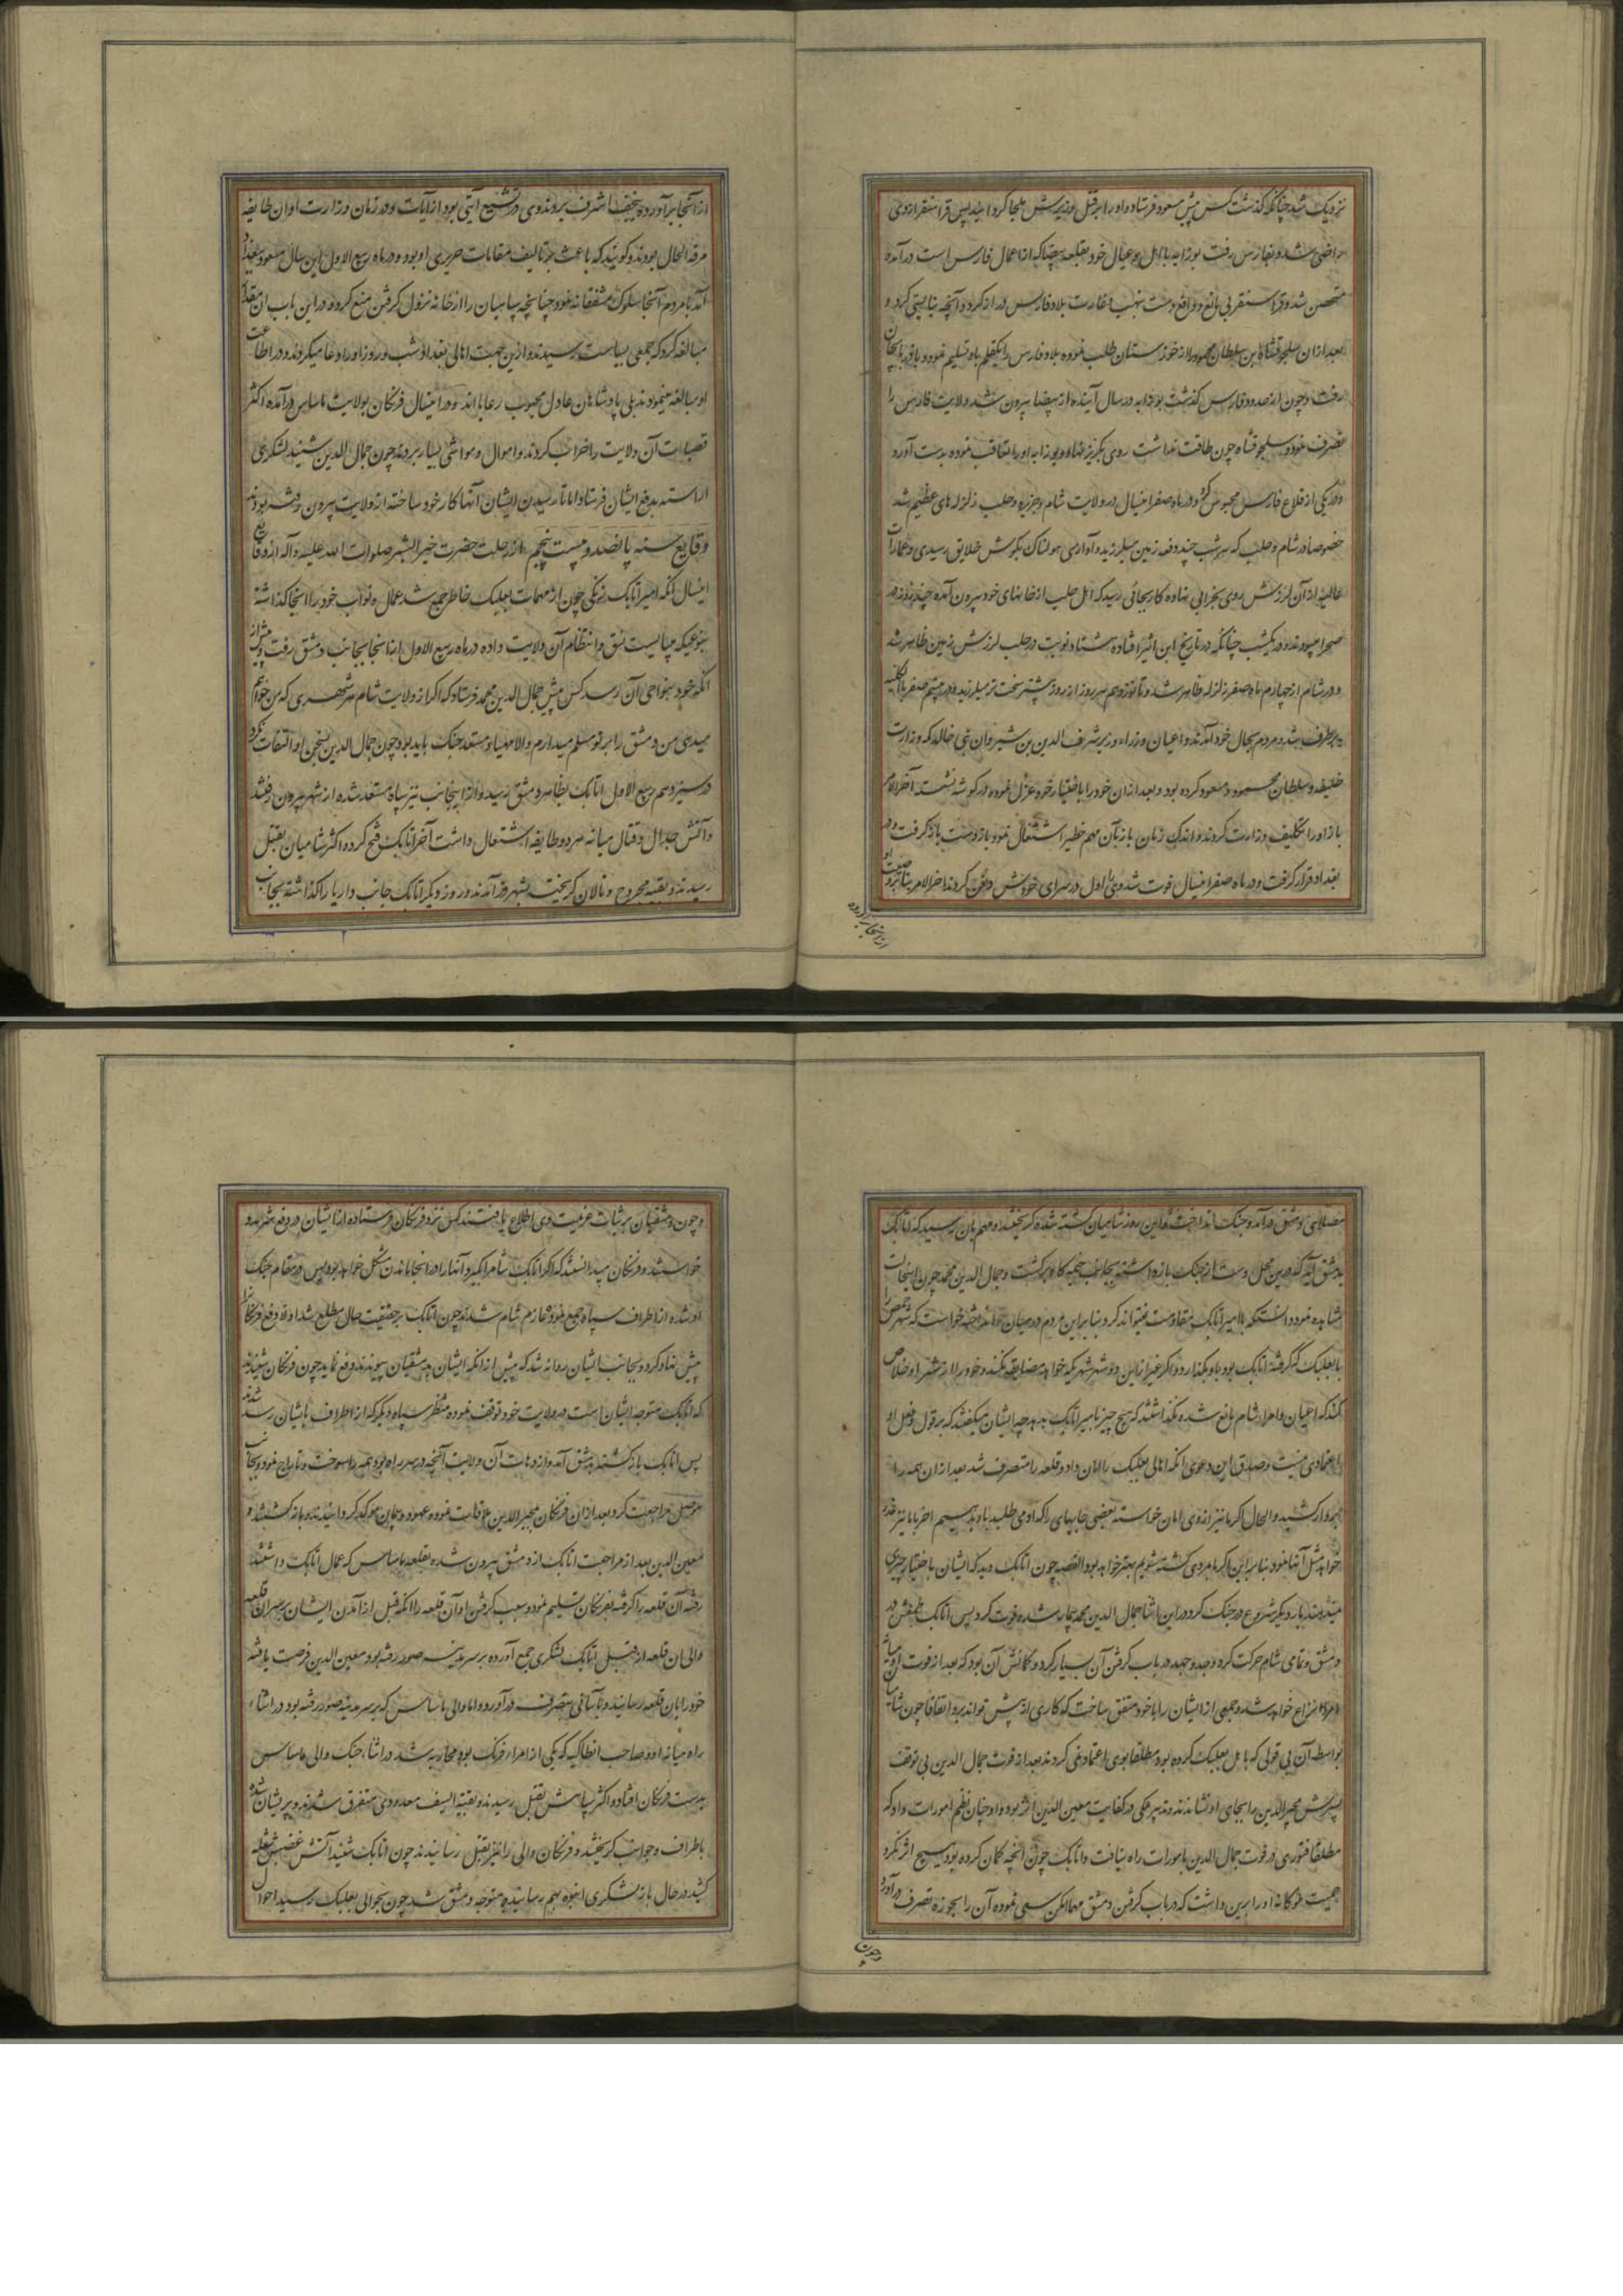 نزدیک شد چنانکه گذشت کس پیش مسعود فرستاد و او را بر قتل وزیرش ملجا گردانید پس قراسنقر ازوی
راضی شد و بفارس رفت بوزابه با اهل و عیال خود بقلعه بیضا که از اعمال فارس است درآمده
متحصن شد و قراسنقر بی مانع و دافع دست بنهب و غارت بلاد فارس دراز کرد و آنچه بنابستی کرد و
بعد ازان سلجوقشاه ابن سلطان محمود را از خوزستان طلب نموده بلاد فارس را بکقلم باو تسلیم نمود و باذربایجان
رفت و چون از حدود فارس گذشت بوزابه در سال آینده از بیضا بیرون شد و ولایت فارس را
تصرف نمود و سلجوقشاه چون طاقت نداشت روی بگریز نهاد و بوزابه او را تعاقب نموده بدست آورد
و در یکی از قلاع فارس محبوس کرد و در ماه صفر اینسال در ولایت شام و جزیره و حلب زلزله های عظیم شد
خصوصا در شام و حلب که هر شب چند دفعه زمین میلرزید و آوازی هولناک بگوش خلایق رسیدی و عمارات
عالیه از آن لرزش روی بخرابی نهاده کار بجائی رسید که اهل حلب از خانهای خود بیرون آمده چند روز در
صحرا میبودند و در یکشب چنانکه در تاریخ ابن اثیر افتاده هشتاد نوبت در حلب لرزش زمین ظاهر شد
و در شام از چهارم ماه صفر زلزله ظاهر شد و تا نوزدهم هر روز از روز پیشتر سخت تر میلرزید و در بیستم صفر بالکلیه
برطرف شد و مردم بحال خود آمدند و اعیان وزراء وزیر شرف الدین بن شیروان بن خالد که وزارت
خلیفه و سلطان محمود و مسعود کرده بود و بعد ازان خود را باختیار خود عزل نموده در گوشه نشسته آخر الامر
باز او را تکلیف وزارت کردند و اندک زمان باز بآن مهم خطیر اشتغال نمود باز دست بازگرفت و در
بغداد قرار گرفت و در ماه صفر اینسال فوت شد وی را اول در سرای خودش دفن کردند آخر الامر بنا بر وصیت او
از آنجا برآورده
از آنجا برآورده بنجف اشرف بردند وی در تشیع آیتی بود از آیات و در زمان وزارت او آن طایفه
مرفه الحال بودند و گویند که باعث بر تالیف مقامات حریری او بود و در ماه ربیع الاول این سال مسعود ببغداد
آمد با مردم آنجا سلوک مشفقانه نمود چنانچه سپاهیان را از خانه نزول گرفتن منع کرد و در این باب آن مقدار
مبالغه کرد که جمعی بسیاست رسیدند و ازین جهت اهالی بغداد شب و روز او را دعا میکردند و در اطاعت
او مبالغه مینمودند بلی پادشاهان عادل محبوب رعایااند و در اینسال فرنگان بولایت بانیاس درآمده اکثر
قصبات آن ولایت را خراب کردند و اموال و مواشی بسیار بردند چون جمال الدین شنید لشکری
آراسته بدفع ایشان فرستاد اما تا رسیدن ایشان آنها کار خود ساخته از ولایت بیرون رفته بودند
وقایع سنه پانصد و بیست پنجم از رحلت حضرت خیر البشر صلوات الله علیه و آله از وقایع
اینسال آنکه امیر اتابک زنگی چون از مهمات بعلبک خاطر جمع شد عمال و نواب خود را آنجا گذاشته
بنوعیکه میبایست نسق و انتظام آن ولایت داده در ماه ربیع الاول از آنجا بجانب دمشق رفت و پیش از
آنکه خود بنواحی آن رسد کس پیش جمال الدین محمد فرستاد که اگر از ولایت شام هر شهری که من خواهم
میدهی من دمشق را بر تو مسلم میدارم والا مهیا و مستعد جنک باید بود چون جمال الدین بسخن او التفات نکرد
در سیزدهم ربیع الاول اتابک بظاهر دمشق رسید و از اینجانب نیز سپاه مستعد شده از شهر بیرون رفتند
و آتش جدال و قتال میانه هر دو طایفه اشتعال داشت آخر اتابک فتح کرد و اکثر شامیان بقتل
رسیدند و بقیه مجروح و نالان گریخته بشهر درآمدند و روز دیگر اتابک جانب داریا را گذاشته بجانب
مصلای دمشق درآمد و جنک انداخت و این روز شامیان کشته شده گریختند و مهم بان رسید که اتابک
بدمشق آید که در این محل دست از جنک بازداشته بجانب خیمه گاه برگشت و جمال الدین محمد چون اینحالت
مشاهده نمود دانست که با امیر اتابک مقاومت نمیتواند کرد بنابراین مردم در میان انداخته خواست که شهر حمص را
با بعلبک که گرفته اتابک بود باو بگذارد و اگر غیر از این دو شهر شهر دیگر خواهد مضایقه نکند و خود را از شر او خلاص
کند که اعیان و امراء شام مانع شده نگذاشتند که هیچ چیز بامیر اتابک بدهد چه ایشان میگفتند که بر قول و فعل او
اعتمادی نیست و صدق این دعوی آنکه اهالی بعلبک را امان داد و قلعه را متصرف شد بعد ازان همه را
بردار کشید و الحال اگر ما نیز ازوی امان خواسته بعضی جایهای را که او می طلبد باو بدهیم آخر با ما نیز غدر
خواهد مثل آنها نمود بنابراین اگر بمردی کشته شویم بهتر خواهد بود القصه چون اتابک دید که ایشان باختیار چیزی
نمیدهند بار دیگر شروع در جنک کرد در این اثنا جمال الدین محمد بیمار شده فوت کرد پس اتابک طمعش در
دمشق و تمامی شام حرکت کرد و جد و جهد در باب گرفتن آن بسیار کرد و گمانش آن بود که بعد از فوت او میانه
امراء نزاع خواهد شد و جمعی از ایشان را با خود متفق ساخت که کاری از پیش تواند برد اتفاقا چون شامیان
بواسطه آن بی قولی که با اهل بعلبک کرده بود مطلقا بوی اعتماد نمی کردند بعد از فوت جمال الدین بی توقف
پسرش مجیر الدین را بجای او نشاندند و تدبیر ملکی در کفایت معین الدین انز بود و او چنان نظم امورات داد که
مطلقا فتوری در فوت جمال الدین بامورات راه نیافت و اتابک چون آنچه گمان کرده بود هیچ اثر نکرد
حمیت ملوکانه او را برین داشت که در باب گرفتن دمشق مهما امکن سعی نموده آن را بحوزه تصرف درآورد
و چون
و چون دمشقیان بر ثبات عزیمت وی اطلاع یافتند کس نزد فرنگان فرستاده از ایشان در دفع شر مدد
خواستند و فرنگان میدانستند که اگر اتابک شام را بگیرد آنها را در آنجا ماندن مشکل خواهد بود پس در مقام جنک
او شده از اطراف سپاه جمع نموده عازم شام شدند چون اتابک بر حقیقت حال مطلع شد اولا دفع فرنگان را
پیش نهاد کرد و بجانب ایشان روانه شد که پیش از آنکه ایشان بدمشقیان پیوندند دفع نماید چون فرنگان شنیدند
که اتابک متوجه ایشان است در ولایت خود توقف نموده منتظر سپاه دیگر که از اطراف بایشان رسد شدند
پس اتابک بازگشته بدمشق آمد و از دهات آن ولایت آنچه در سر راه بود همه را سوخت و تاراج نمود و بجانب
موصل مراجعت کرد بعد ازان فرنگان مجیر الدین ملاقات نموده عهود و پیمان موکد گردانیدند و بازگشتند و
معین الدین بعد از مراجعت اتابک از دمشق بیرون شده بقلعه بانیاس که عمال اتابک داشتند
رفته آن قلعه را گرفته بفرنگان تسلیم نمود و سبب گرفتن او آن قلعه را آنکه قبل از آمدن ایشان بر سر آن قلعه
والی آن قلعه از قبل اتابک لشکری جمع آورده بر سر مدینه صور رفته بود معین الدین فرصت یافته
خود را بان قلعه رسانید و بآسانی بتصرف درآورد و اما والی بانیاس که بر سر مدینه صور رفته بود در اثناء
راه میانه او و صاحب انطاکیه که یکی از امراء فرنگ بود محاربه شد در اثناء جنک والی بانیاس
بدست فرنگان افتاد و اکثر سپاهش بقتل رسیدند و بقیة السیف معدودی متفرق شدند و پریشان شده
باطراف و جوانب گریختند و فرنگان والی را نیز بقتل رسانیدند چون اتابک شنید آتش غضبش شعله
کشید در حال باز لشکری انبوه بهم رسانیده متوجه دمشق شد چون بحوالی بعلبک رسید احوال